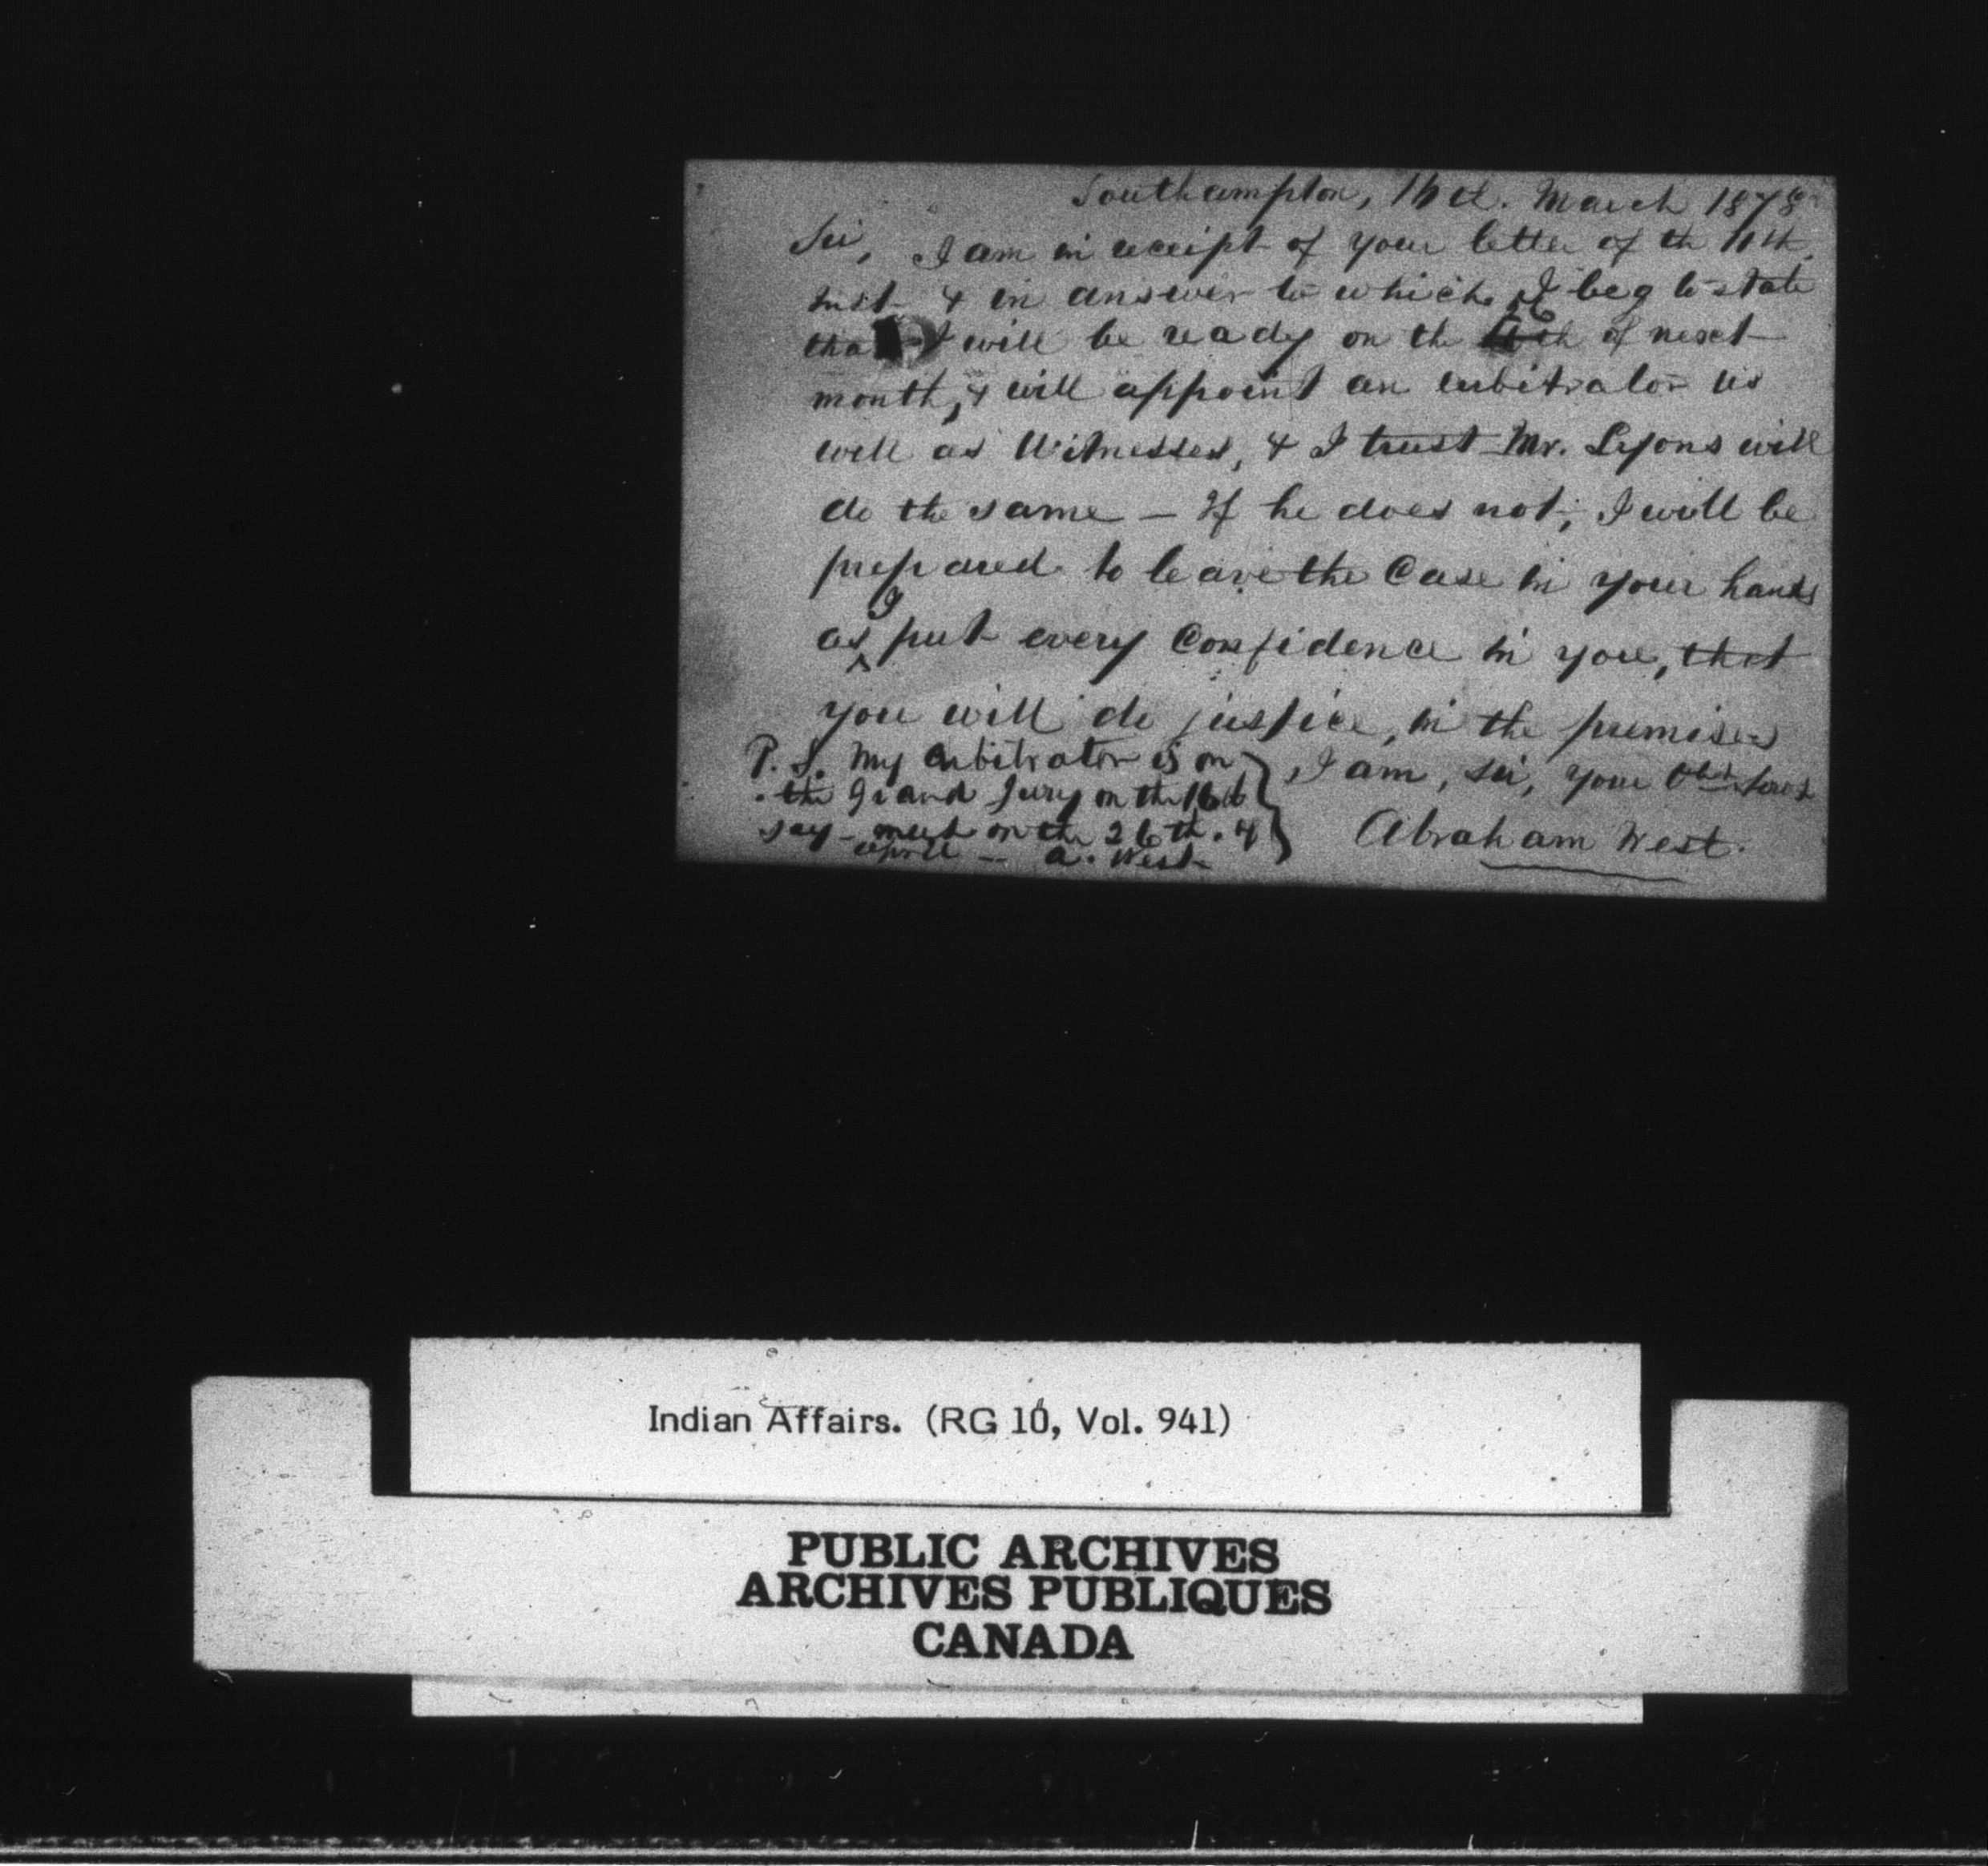 Southampton, 16th. March 1878
Sir, I am in receipt of your letter of the 11th,
inst- & in answer to which, I beg to state
that I will be ready on the 26th of next
month, & will appoint an arbitrator as
well as Witnesses, & I trust Mr. Lyons will
do the same — If he does not, I will be
prepared to leave the Case in your hands
as I put every Confidence in you, that
you will do justice, in the premises
I am, Sir, your Obt. Servt
Abraham West.
P. S. My arbitrator is on
the Grand Jury on the 16th
say - meet on the 26th. of
april -- A. West
Indian Affairs. (RG 10, Vol. 941)
PUBLIC ARCHIVES
ARCHIVES PUBLIQUES
CANADA